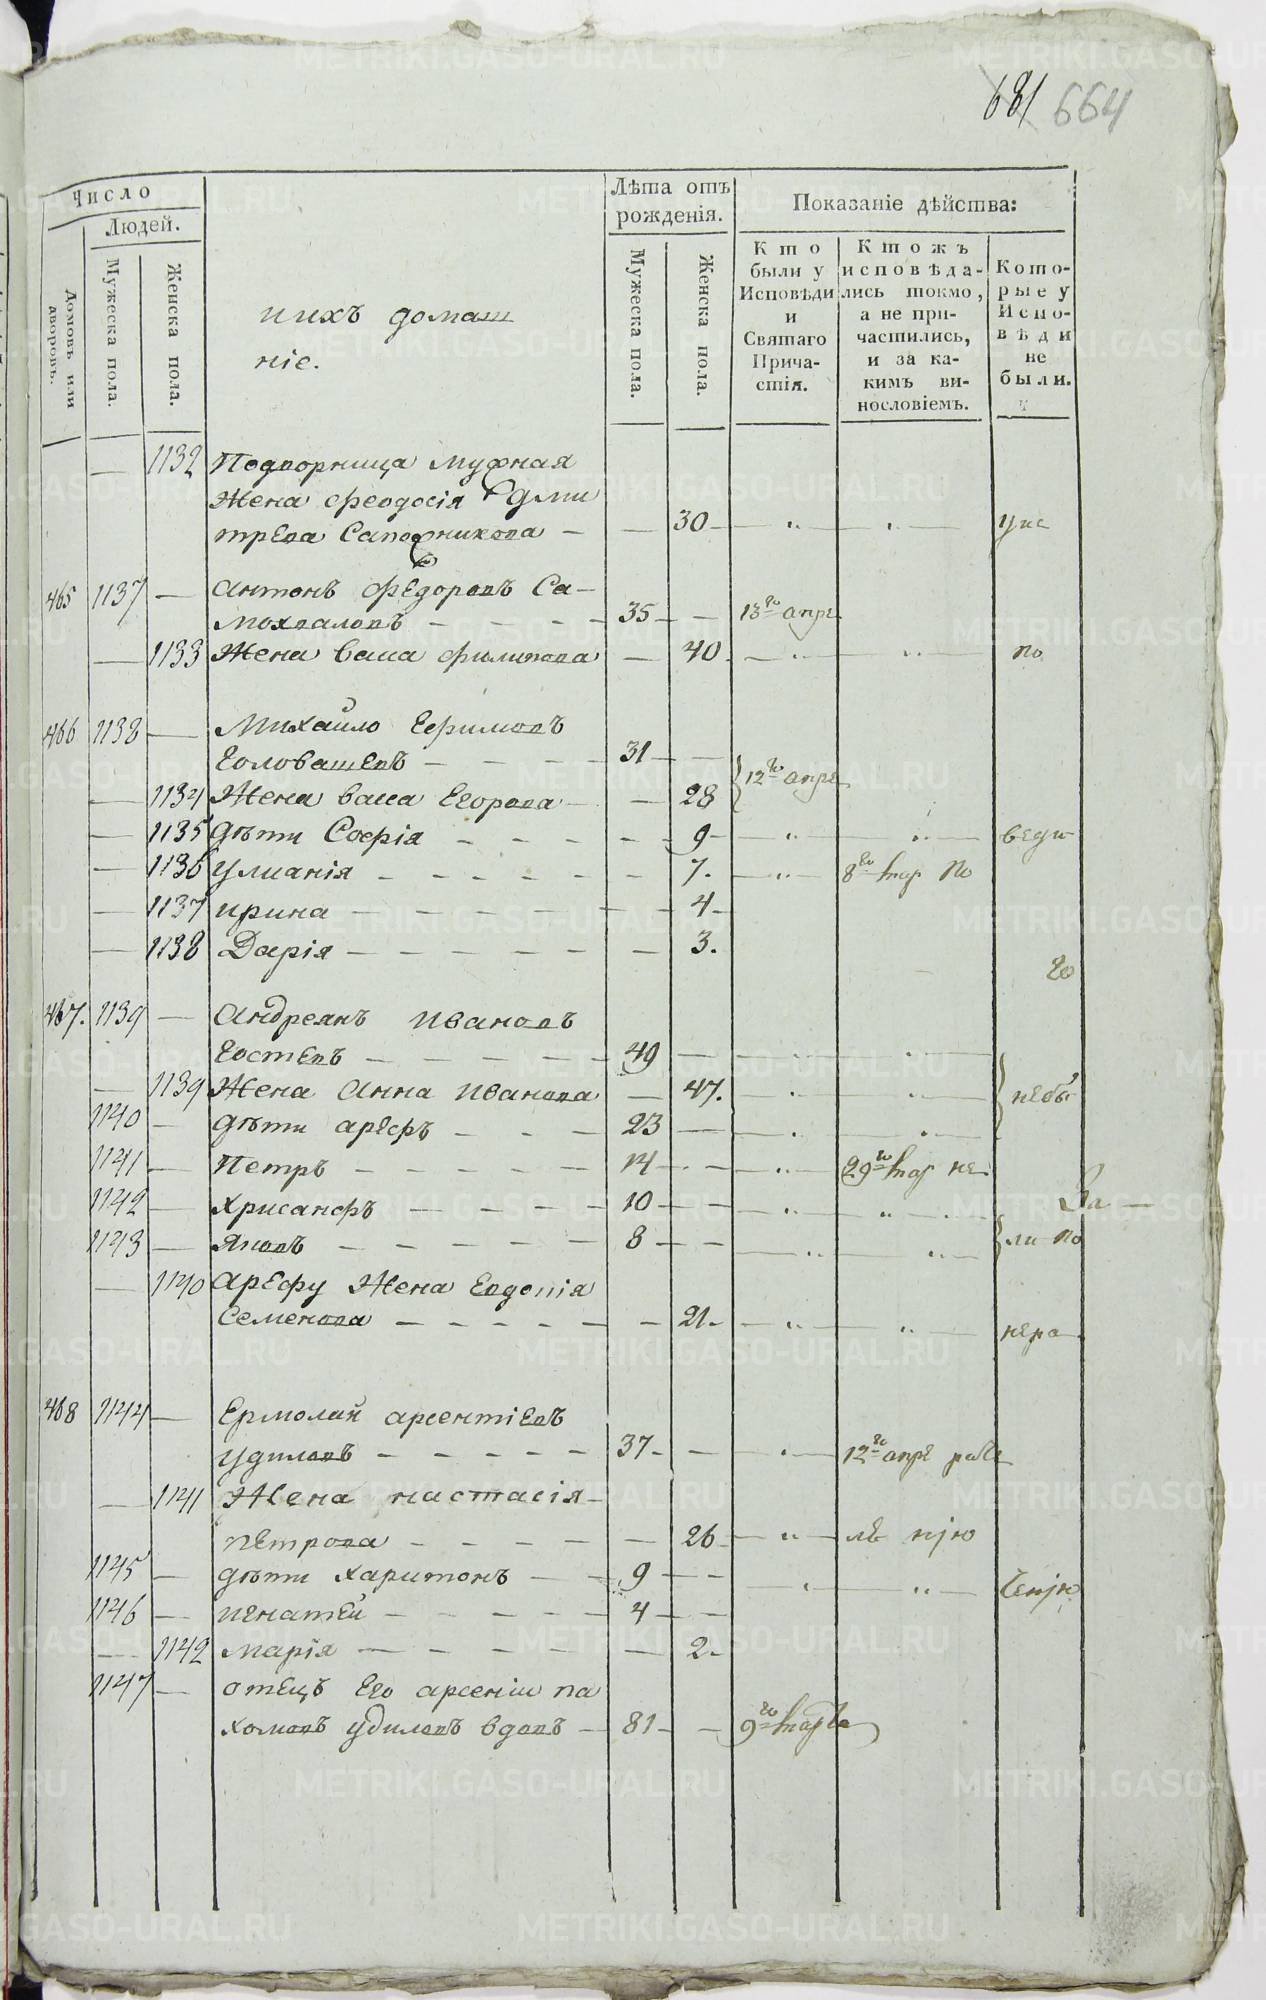 681 664
Число
Людей.
Домовъ или дворовъ.
Мужеска пола.
Женска пола.
ихъ домаш
ніе.
Лѣта отъ рожденія.
Мужеска пола.
Женска пола.
Показаніе дѣйства:
Кто были у Исповѣди и Святаго Причастія.
Ктожъ исповѣдались токмо, а не причастились, и за какимъ винословіемъ.
Которые у Исповѣди не были.
1132 Подворница мужная
жена феодосія дми
трева Сапожникова 30
465 1137 антонъ федоровъ Са-
мохваловъ 35 13го апре
1133 Жена васса филипова 40 по
466 1138 Михайло Ефимовъ
головашевъ 31
12го апре
1134 Жена васса Егорова 28
1135 дѣти Софія 9
1136 улианія 7. 8го мар по
1137 ирина 4
1138 Дарія 3.
го
467. 1139 андреянъ ивановъ
гостевъ 49
1139 Жена анна иванова 47. небы
1140 дѣти арефъ 23
1141 Петръ 14 29го мар не
1142 хрисанфъ 10
1143 яковъ 8 ли по
1140 арефу Жена Евдокія
Семенова 21. нера
468 1144 Ермолай арсентіевъ
удиловъ 37 12го апре
1141 Жена настасія
петрова 26
1145 дѣти харитонъ 9
1146 игнатей 4
1142 марія 2
1147 отецъ его арсеніи па
хомовъ удиловъ вдовъ 81 9го марта
METRIKI.GASO-URAL.RU